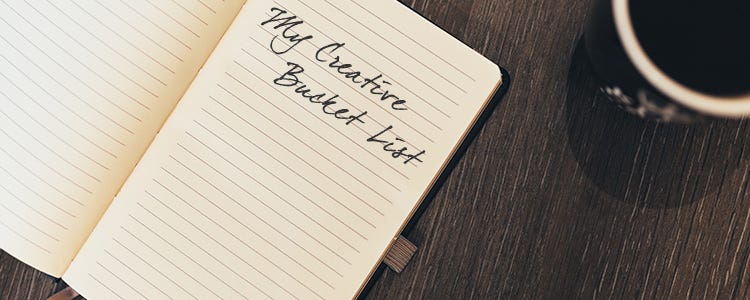 My Creative
Bucket List